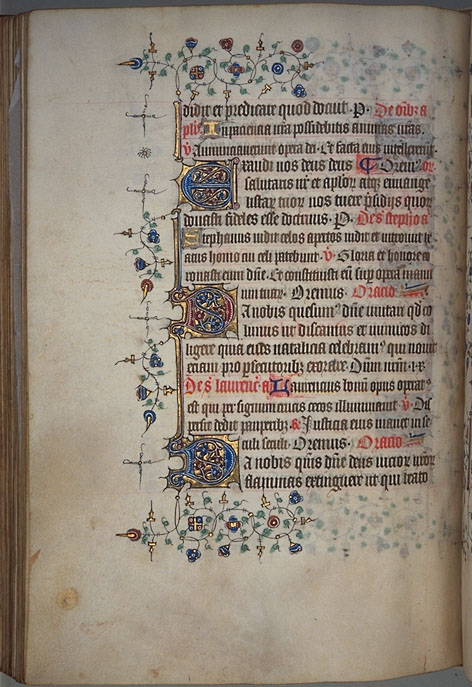 didit et predicare quod docuit. P. De oībz a
pl'is In paciencia vr̄a possidebitis animas vr̄as.
v Annunciaverunt opera dei. Et facta eius intellexerūt.
Exaudi nos deus Orem' or.
salutaris nr̄ et ap̄lorꝫ atqꝫ euuange
listarꝫ tuorꝫ nos tuere p̄sidijs quorꝫ
donasti fideles esse doctrinis. P. De s̄ stephō a
Stephanus vidit celos apertos vidit et introiuit be
atus homo cui celi patebant. v Gloria et honore co
ronasti eum dn̄e. Et constituisti eū suꝑ opera manu
um tuarꝫ. Oremus. Oracio
Da nobis quesum' dn̄e imitari qd̄ co
limus ut discamus et inimicos di
ligere quia eius natalicia celebram' qui novit
eciam pro persecutoribꝫ exorare. Dn̄m nr̄m. i. x
De s̄ laurenc' a Laurencius bonū opus operat'
est qui per signum crucis cecos illuminavit v Dis
persit dedit pauperibꝫ. & Justicia eius manet in se
culū seculi. Oremus. Oracio
Da nobis qs̄ dn̄e deus vicior nr̄orꝫ
flammas extinguere ut qui beato